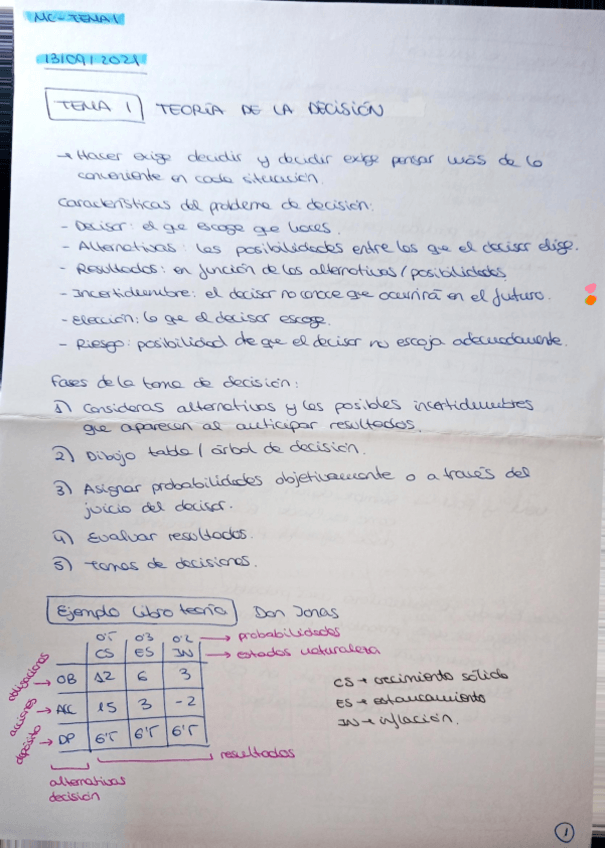 MC - TEMA 1
13/09/2021
TEMA 1 TEORÍA DE LA DECISIÓN
→ Hacer exige decidir y decidir exige pensar más de lo
conveniente en cada situación.
Características del problema de decisión:
- Decisor: el que escoge que haces.
- Alternativas: las posibilidades entre las que el decisor elige.
- Resultados: en función de las alternativas/posibilidades
- Incertidumbre: el decisor no conoce que ocurrirá en el futuro.
- Elección: lo que el decisor escoge.
- Riesgo: posibilidad de que el decisor no escoja adecuadamente.
Fases de la toma de decisión:
1) Consideras alternativas y las posibles incertidumbres
que aparecen al anticipar resultados.
2) Dibujo tabla / árbol de decisión.
3) Asignar probabilidades objetivamente o a través del
juicio del decisor.
4) Evaluar resultados.
5) Tomas de decisiones.
Ejemplo libro teoría Don Jonas
0'5 0'3 0'2 → probabilidades
CS ES IN → estados naturaleza
obligaciones → OB 12 6 3
acciones → ACC 15 3 -2
depósito → DP 6'5 6'5 6'5
resultados
alternativas
decisión
CS → crecimiento sólido
ES → estancamiento
IN → inflación.
1